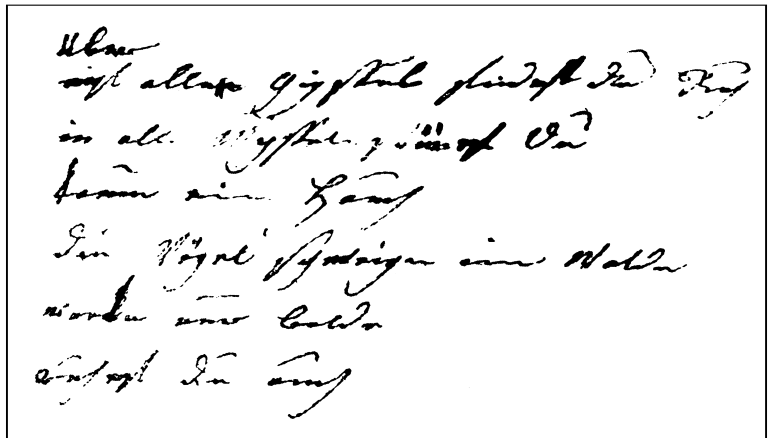 über
allen Gipfeln findest du Ruh
in allen Wipfeln spürest Du
kaum einen Hauch
die Vögel schweigen im Walde
warte nur balde
ruhest du auch